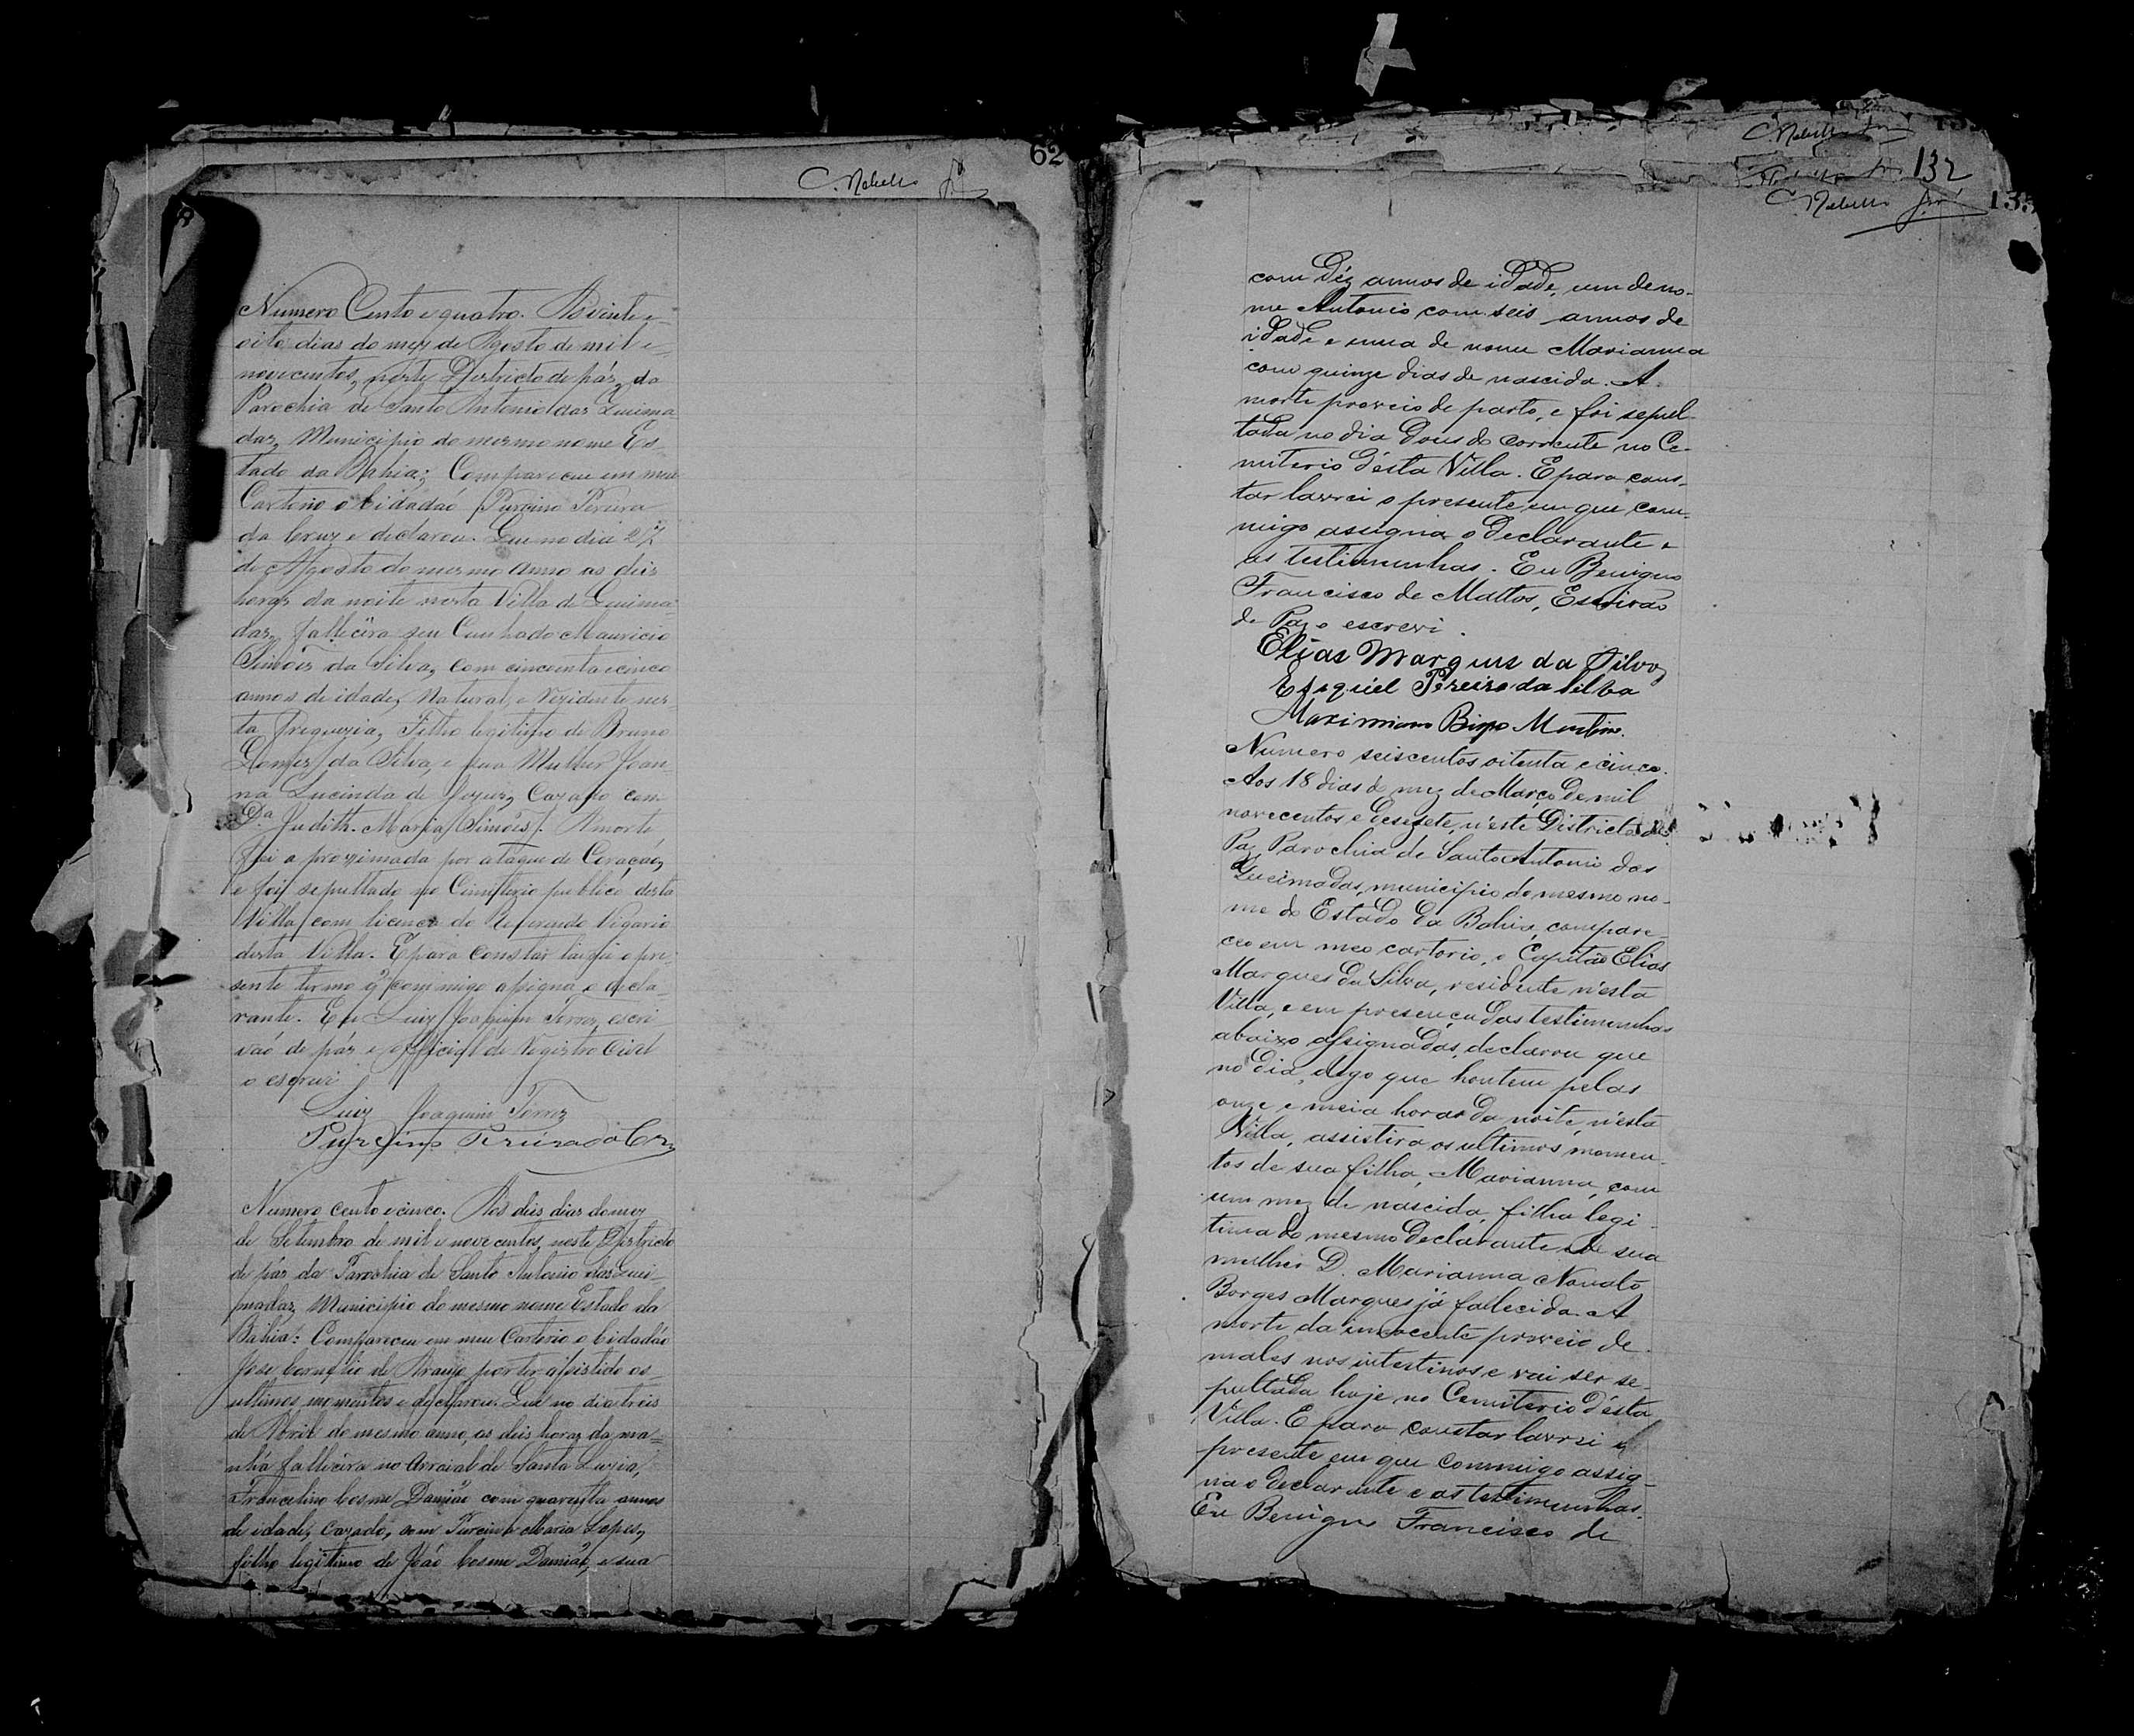 62
C. Rebello Jor
Numero Cento e quatro. Aos vinte e
oito dias do mez de Agosto de mil e
novecentos, neste Districto de páz, da
Parochia de Santo Antonio das Queima
das, Municipio do mesmo nome Es-
tado da Bahia; Compareceu em meu
Cartorio o Cidadaõ Purcino Pereira
da Cruz e declarou. Que no dia 27
de Agosto do mesmo anno as deis
horas da noite nesta Villa de Queima
das, fallecêra seu Cunhado Mauricio
Simões da Silva, com cincoenta e cinco
annos de idade, Natural, e Rezidente nes-
ta Freguezia, Filho legitimo de Bruno
da Silva, e sua Mulher Joan-
na Lucinda de Jezus, Cazado com
D.a Judith Maria Simões. A morte
foi a proximada por ataque de Coraçaõ,
e foi sepultado no Cimiterio publico, desta
Villa com licença do Reverendo Vigario
desta Villa. E para constar lavrei o pre-
sente termo q̃ commigo assigna o decla-
rante. Eu Luiz Joaquim Torres, escri
vaõ de páz e official do Registro Civil
o escrevi
Luiz Joaquim Torres
Purcino Pereira da Cruz
Numero cento e cinco. Aos deis dias do mez
de Setembro de mil e novecentos, neste Districto
de páz da Parochia de Santo Antonio das Quei-
madas, Municipio do mesmo nome Estado da
Bahia: Compareceu em meu Cartorio o Cidadão
Jose Cornelio de Araujo por ter assistido os
ultimos momentos e declarou. Que no dia treis
de Abril do mesmo anno, as deis horas da ma=
nhã fallecêra no Arraial de Santa Luzia,
Francelino Cosme Damião com quarenta annos
de idade, Cazado, com Purcina Maria Lopes,
filho legitimo de Joaõ Cosme Damiaõ, e sua
C Rebello Jor
132
C Rebello Jor
com déz annos de idade, um de no-
me Antonio com seis annos de
idade e uma de nome Marianna
com quinze dias de nascida. A
morte proveio de parto, e foi sepul-
tada no dia dous do corrente no Ce-
miterio d'esta Villa. E para cons-
tar lavrei o presente em que com-
migo assigna o declarante e
as testimunhas. Eu Benigno
Francisco de Mattos, Escrivão
de Paz o escrevi.
Elias Marques da Silva
Esequiel Pereira da Silva
Maximiano Bispo Martins.
Numero seiscentos oitenta e cinco.
Aos 18 dias do mez de Março de mil
novecentos e desesete, n'este Districto de
Paz Parochia de Santo Antonio das
Queimadas, municipio do mesmo no-
me do Estado da Bahia, compare-
ceo em meo cartorio, o Capitão Elias
Marques da Silva, residente n'esta
Villa, e em presença das testimunhas
abaixo assignadas, declarou que
no dia, digo que hontem pelas
onze e meia horas da noite, n'esta
Villa, assistira os ultimos momen-
tos de sua filha, Marianna, com
um mez de nascida, filha legi-
tima do mesmo declarante e de sua
mulher D. Marianna Novato
Borges Marques já fallecida. A
morte da innocente proveio de
males nos intestinos e vai ser se-
pultada hoje no Cemiterio d'esta
Villa. E para constar lavrei o
presente em que commigo assig-
na o declarante e as testimunhas.
Eu Benigno Francisco de